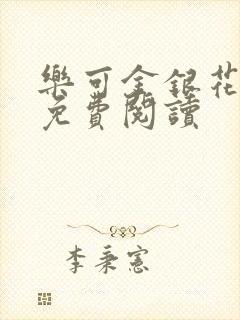 樂可金銀花
免費閱讀
李秉憲